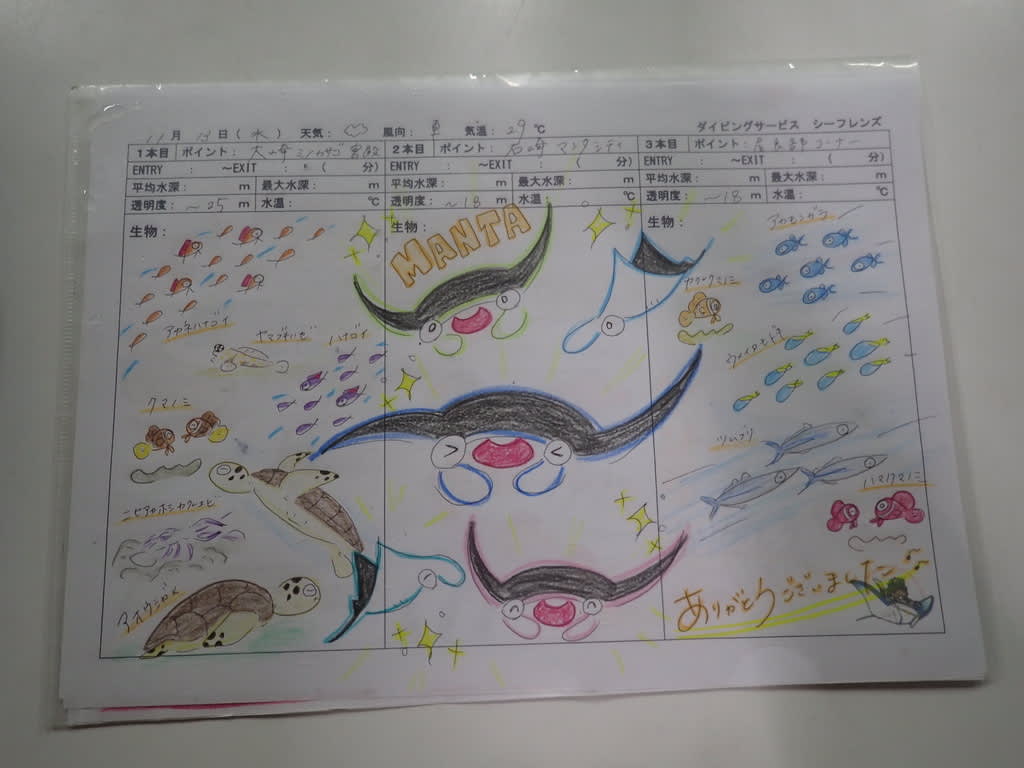 11月 日(水) 天気: 風向: 東 気温: 29℃
ダイビングサービス シーフレンズ
1本目 ポイント: 大崎
ENTRY : ～EXIT : ( 分)
平均水深: m 最大水深: m
透明度: ～25 m 水温: ℃
生物:
アカネハナゴイ
ヤマブキハゼ
ハナゴイ
クマノミ
アオウミガメ
2本目 ポイント: 石崎 マンタシティ
ENTRY : ～EXIT : ( 分)
平均水深: m 最大水深: m
透明度: ～18 m 水温: ℃
生物:
MANTA
3本目 ポイント: コーナー
ENTRY : ～EXIT : ( 分)
平均水深: m 最大水深: m
透明度: ～18 m 水温: ℃
生物:
アカモンガラ
ツムブリ
ハマクマノミ
ありがとうございました